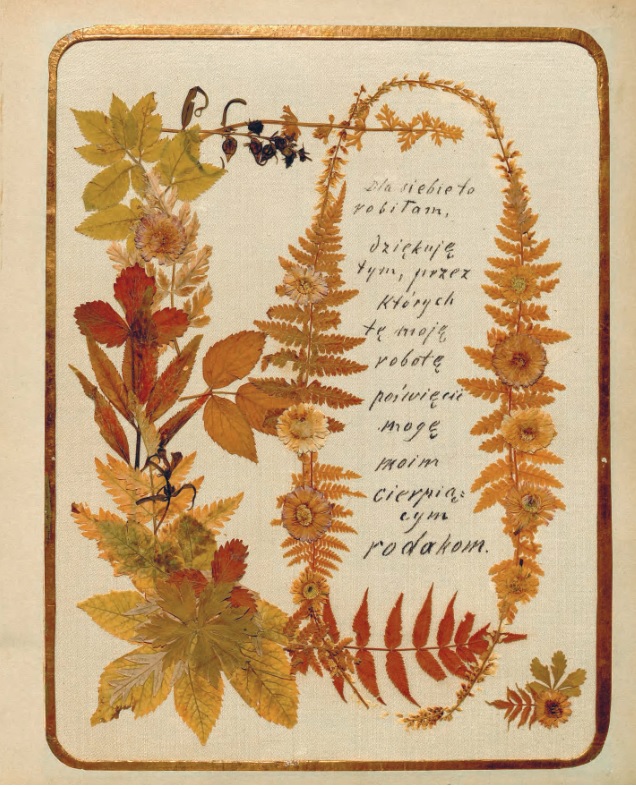 Dla siebie to
robiłam,
dziękuję
tym, przez
których
tę moję
robotę
poświęcić
mogę
moim
cierpią:
cym
rodakom.